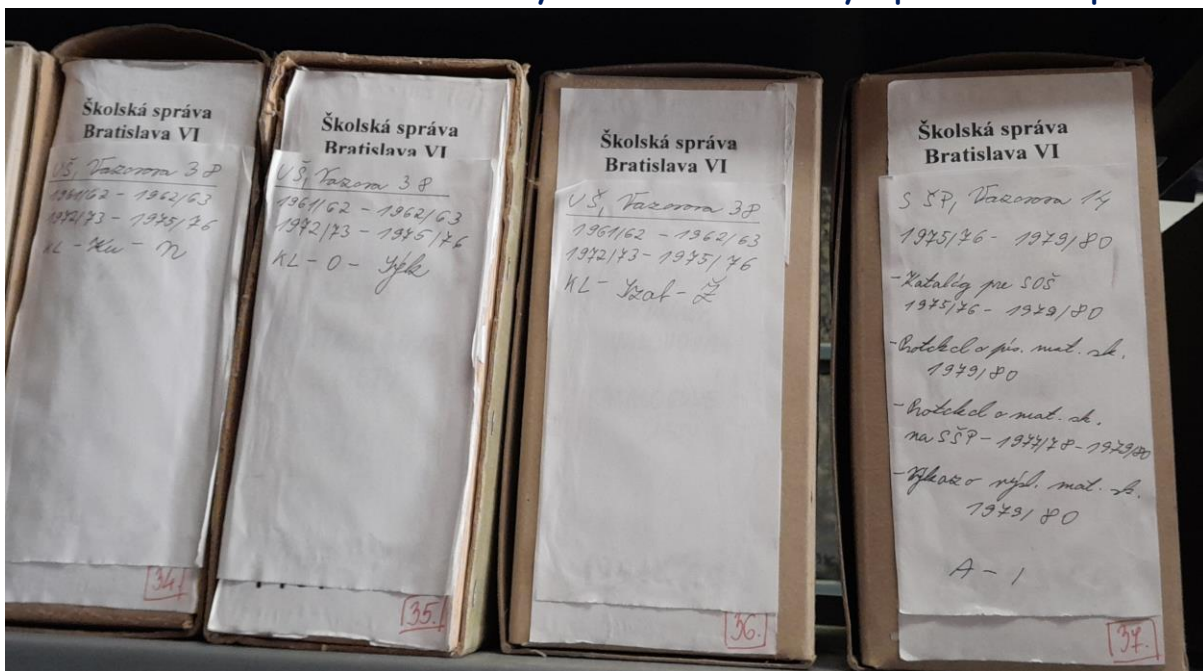 Školská správa
Bratislava VI
UŠ, Vazovova 38
1961/62 - 1962/63
1972/73 - 1975/76
KL - Ku - N
34.
Školská správa
Bratislava VI
UŠ, Vazovova 38
1961/62 - 1962/63
1972/73 - 1975/76
KL - O -
35.
Školská správa
Bratislava VI
UŠ, Vazovova 38
1961/62 - 1962/63
1972/73 - 1975/76
KL - - Ž
36.
Školská správa
Bratislava VI
SŠP, Vazovova 14
1975/76 - 1979/80
- Katalóg pre SOŠ
1975/76 - 1979/80
- Protokol o pís. mat. sk.
1979/80
- Protokol o mat. sk.
na SŠP - 1977/78 - 1979/80
- Výkaz o výsl. mat. sk.
1979/80
A - I
37.